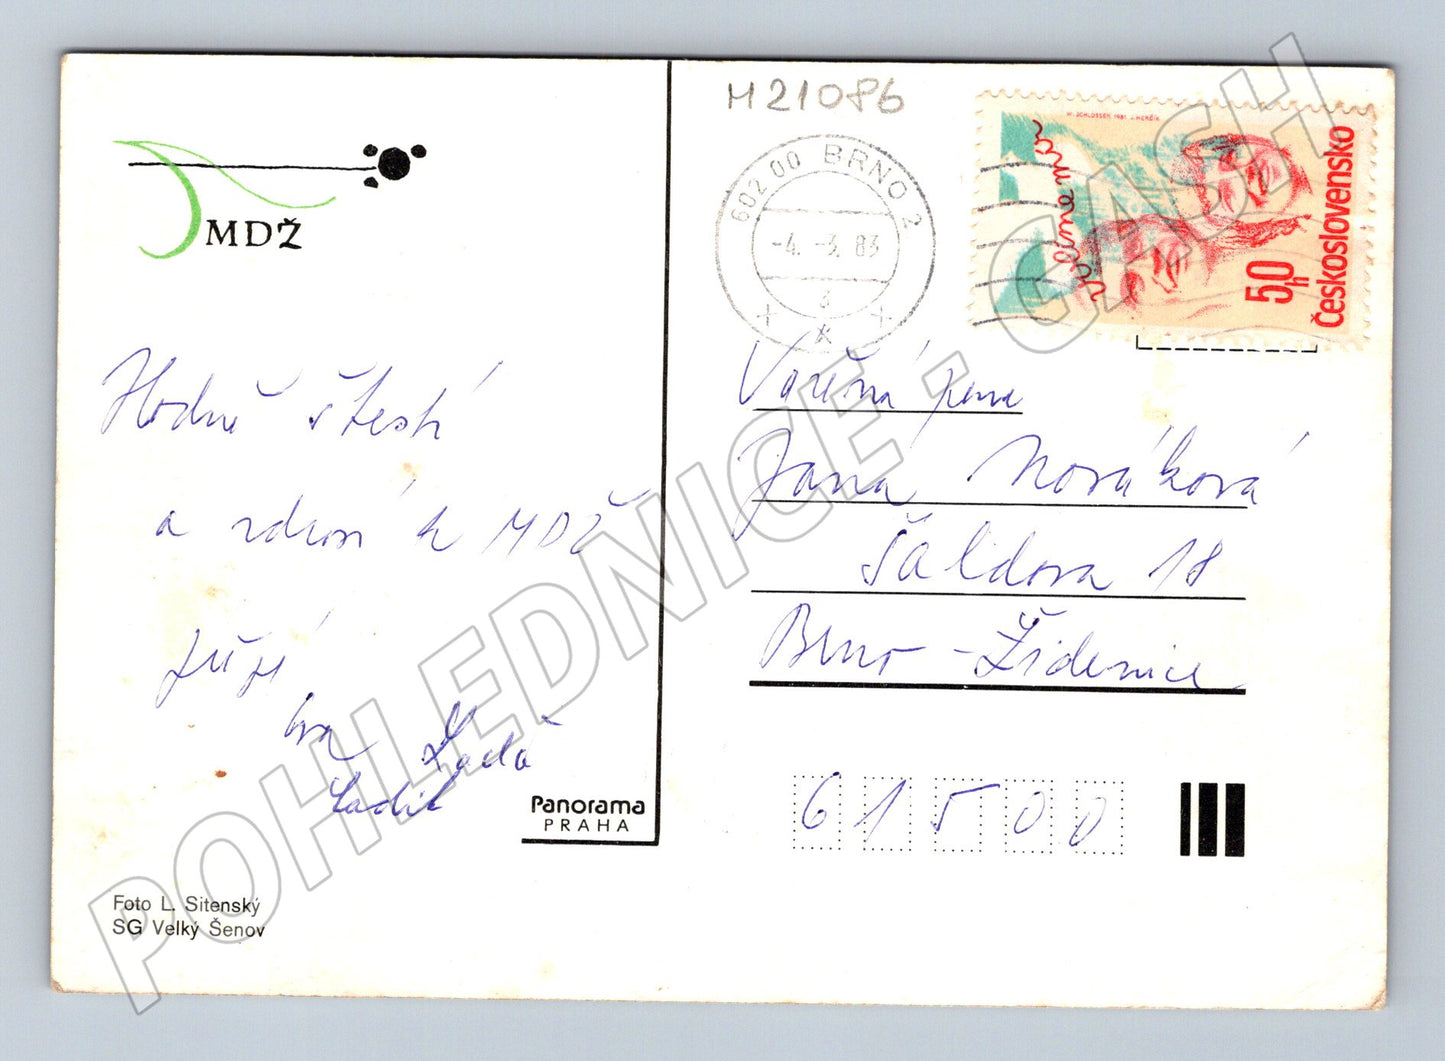 MDŽ
Hodně štěstí
a zdraví k MDŽ
přejí
Iva Láďa
Ladik
Panorama
PRAHA
Foto L. Sitenský
SG Velký Šenov
M21086
602 00 BRNO 2
-4.-3.83
W. SCHLOSSER 1981 J. HERČÍK
volíme NF
50h
Československo
Vážená paní
Jana Nováková
Šaldova 18
Brno - Židenice
61500
POHLEDNICE - CASH